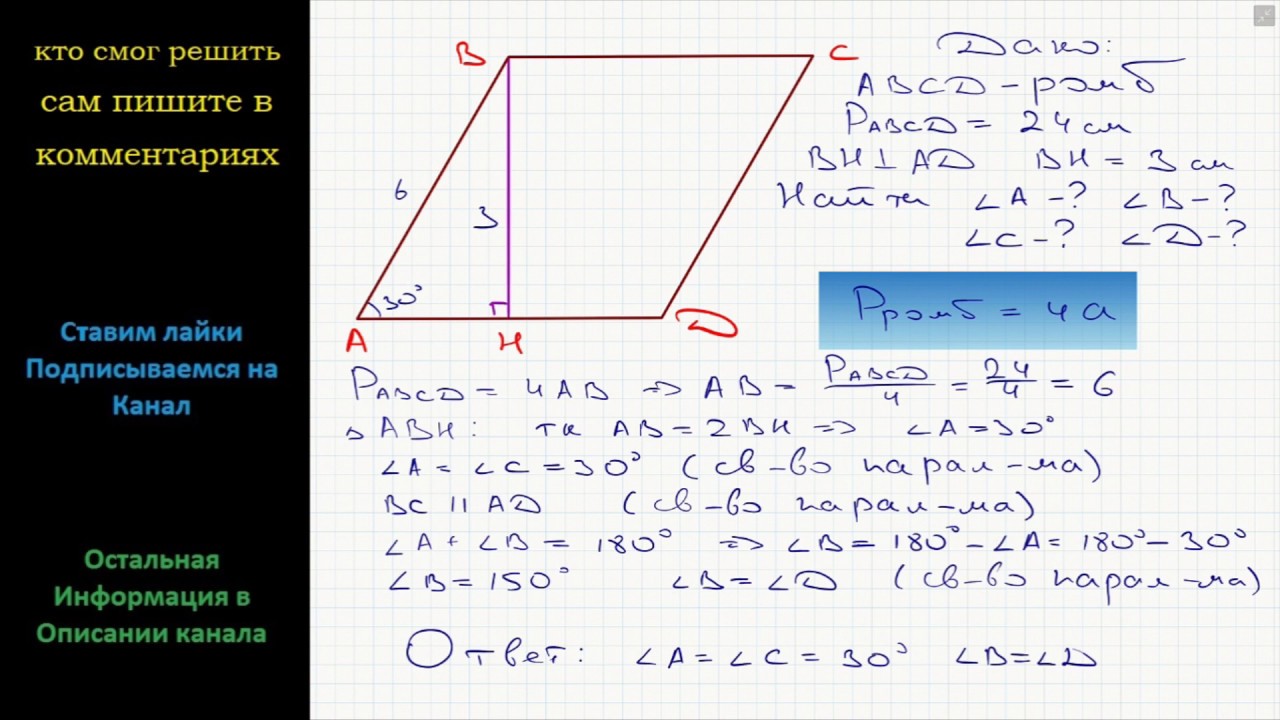 кто смог решить
сам пишите в
комментариях
Ставим лайки
Подписываемся на
Канал
Остальная
Информация в
Описании канала
B
C
6
3
30°
A
H
D
Дано:
ABCD - ромб
PABCD = 24 см
BH ⊥ AD BH = 3 см
Найти ∠A -? ∠B -?
∠C -? ∠D -?
Pромб = 4a
PABCD = 4AB => AB = PABCD/4 = 24/4 = 6
△ABH: тк AB = 2BH => ∠A = 30°
∠A = ∠C = 30° (св-во парал-ма)
BC || AD (св-во парал-ма)
∠A + ∠B = 180° => ∠B = 180° - ∠A = 180° - 30°
∠B = 150° ∠B = ∠D (св-во парал-ма)
Ответ: ∠A = ∠C = 30° ∠B = ∠D